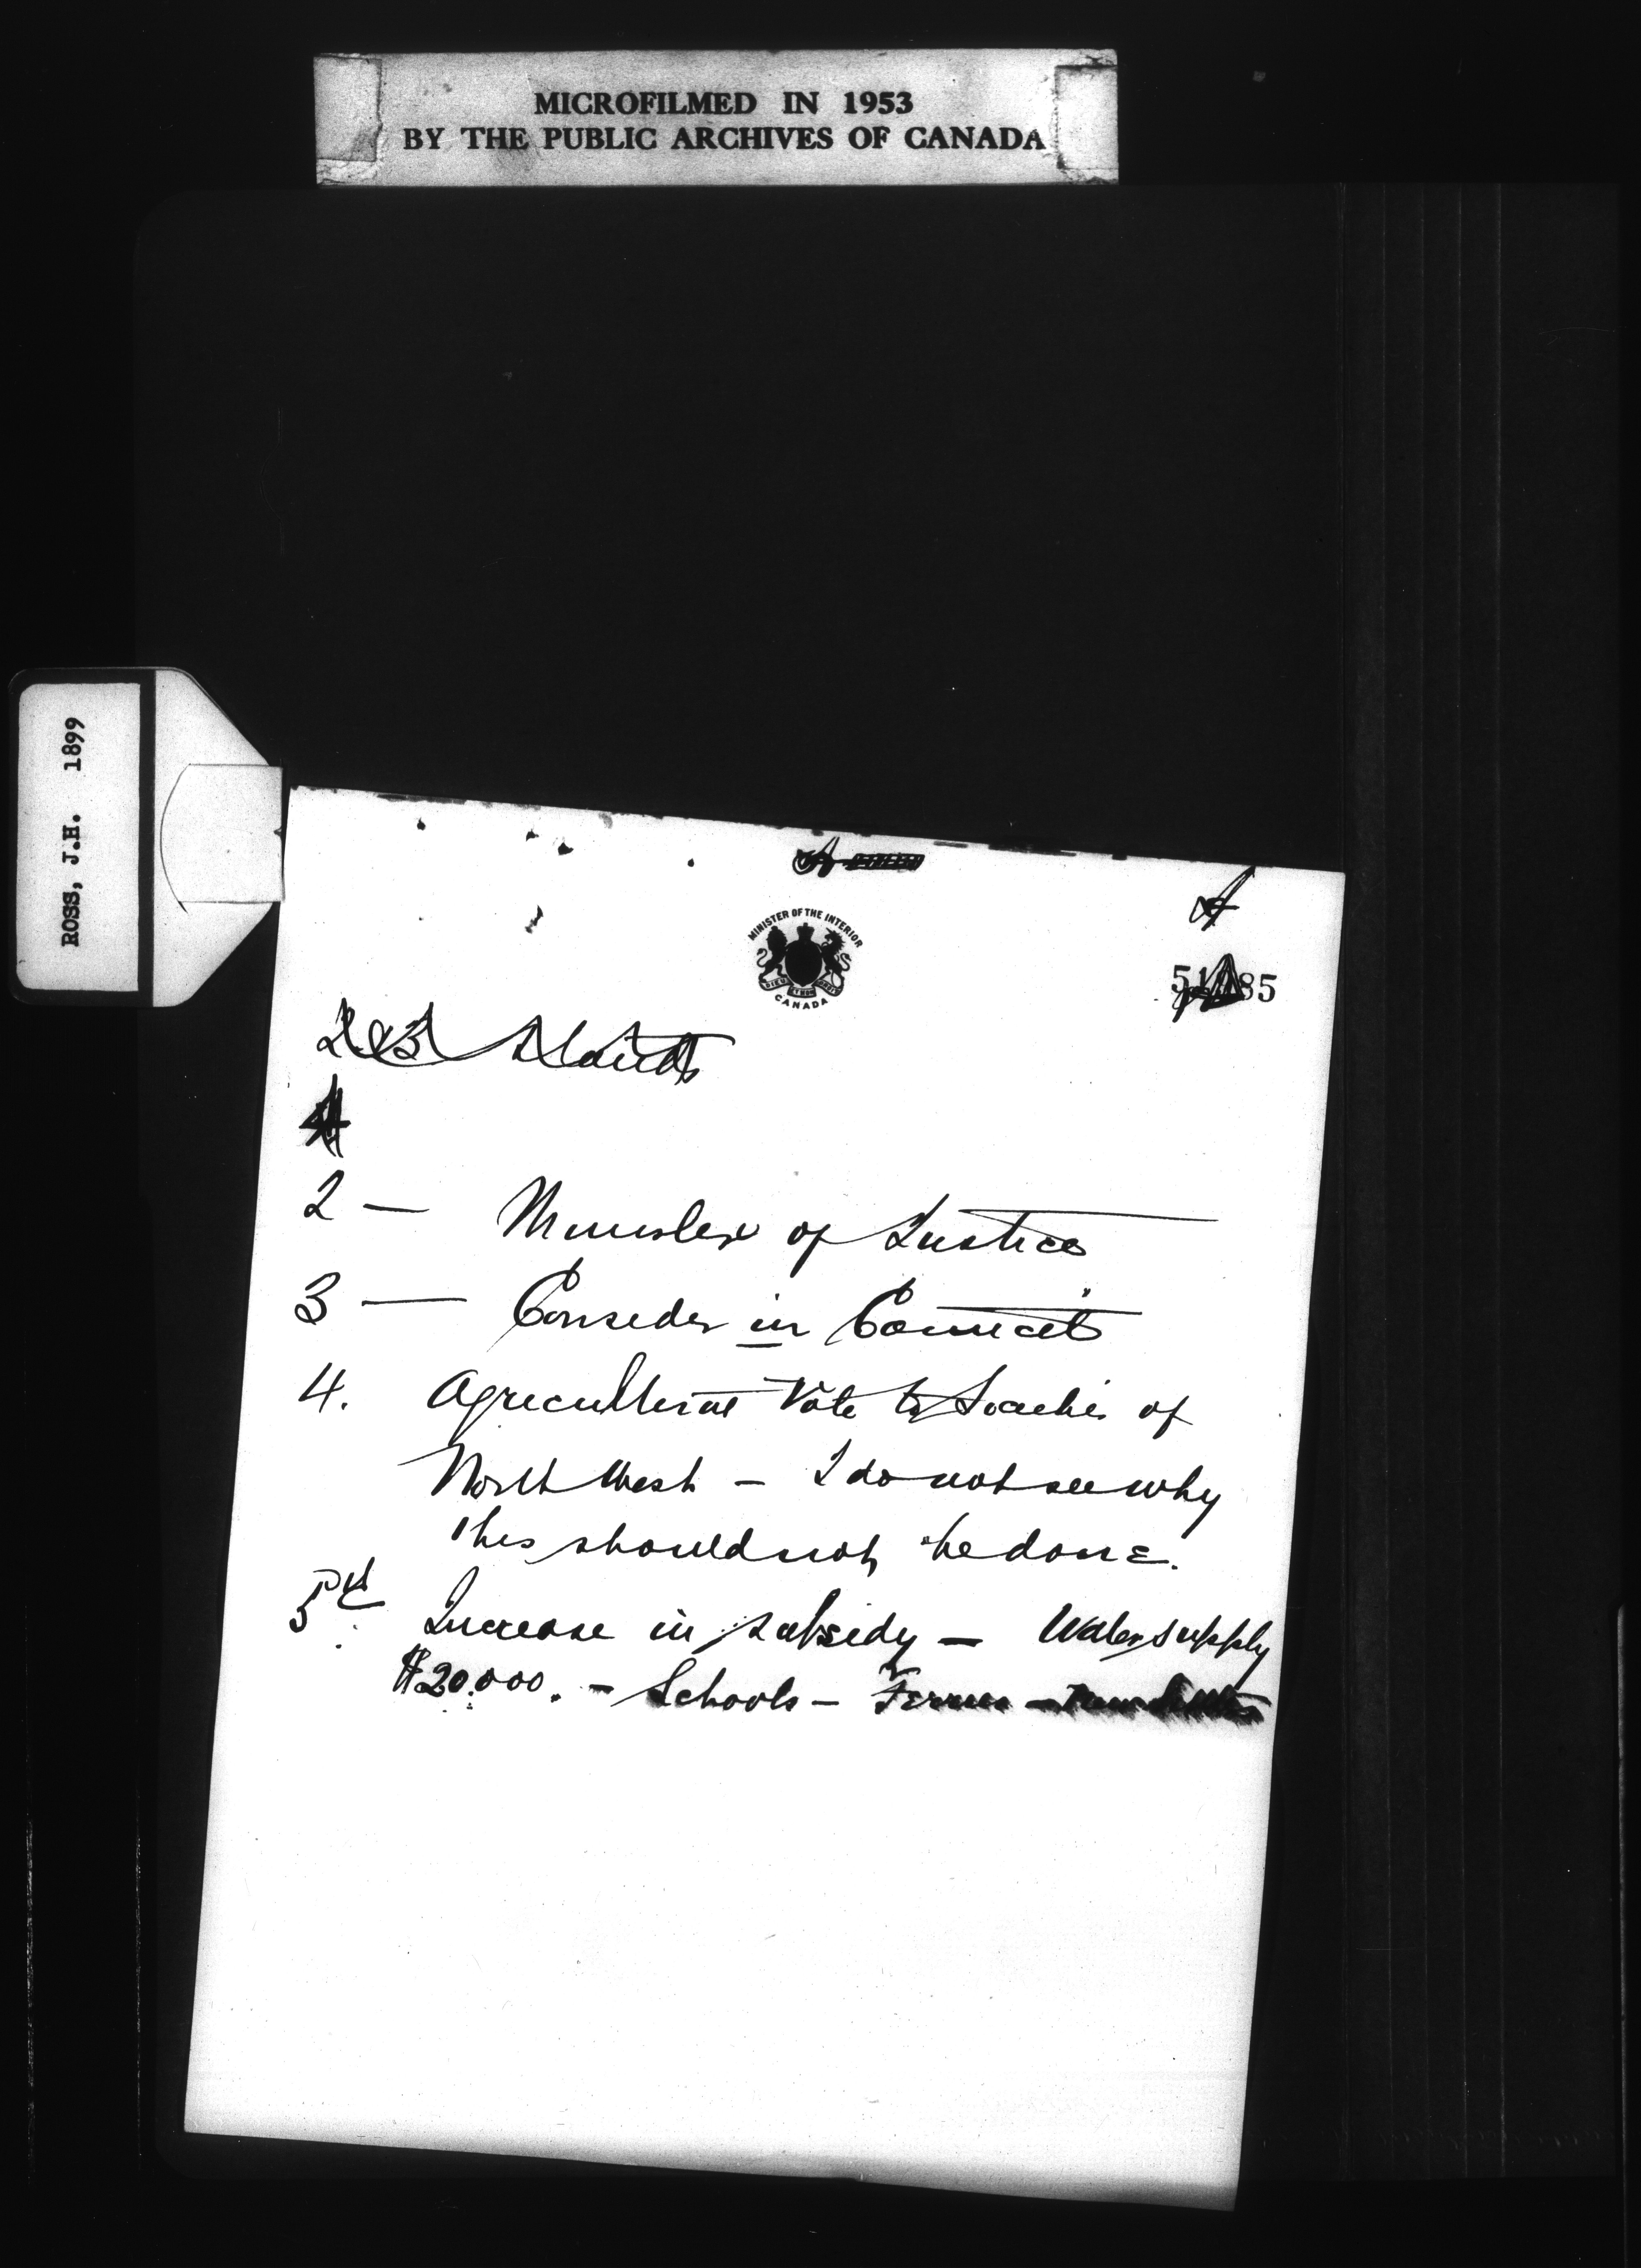 MICROFILMED IN 1953
BY THE PUBLIC ARCHIVES OF CANADA
ROSS, J.H. 1899
A
MINISTER OF THE INTERIOR
CANADA
2 — Minister of Justice
3 — Consider in Council
4. Agricultural Vote to Societies of
North West – I do not see why
this should not be done.
5th Increase in subsidy – Water supply
$20.000. – Schools –